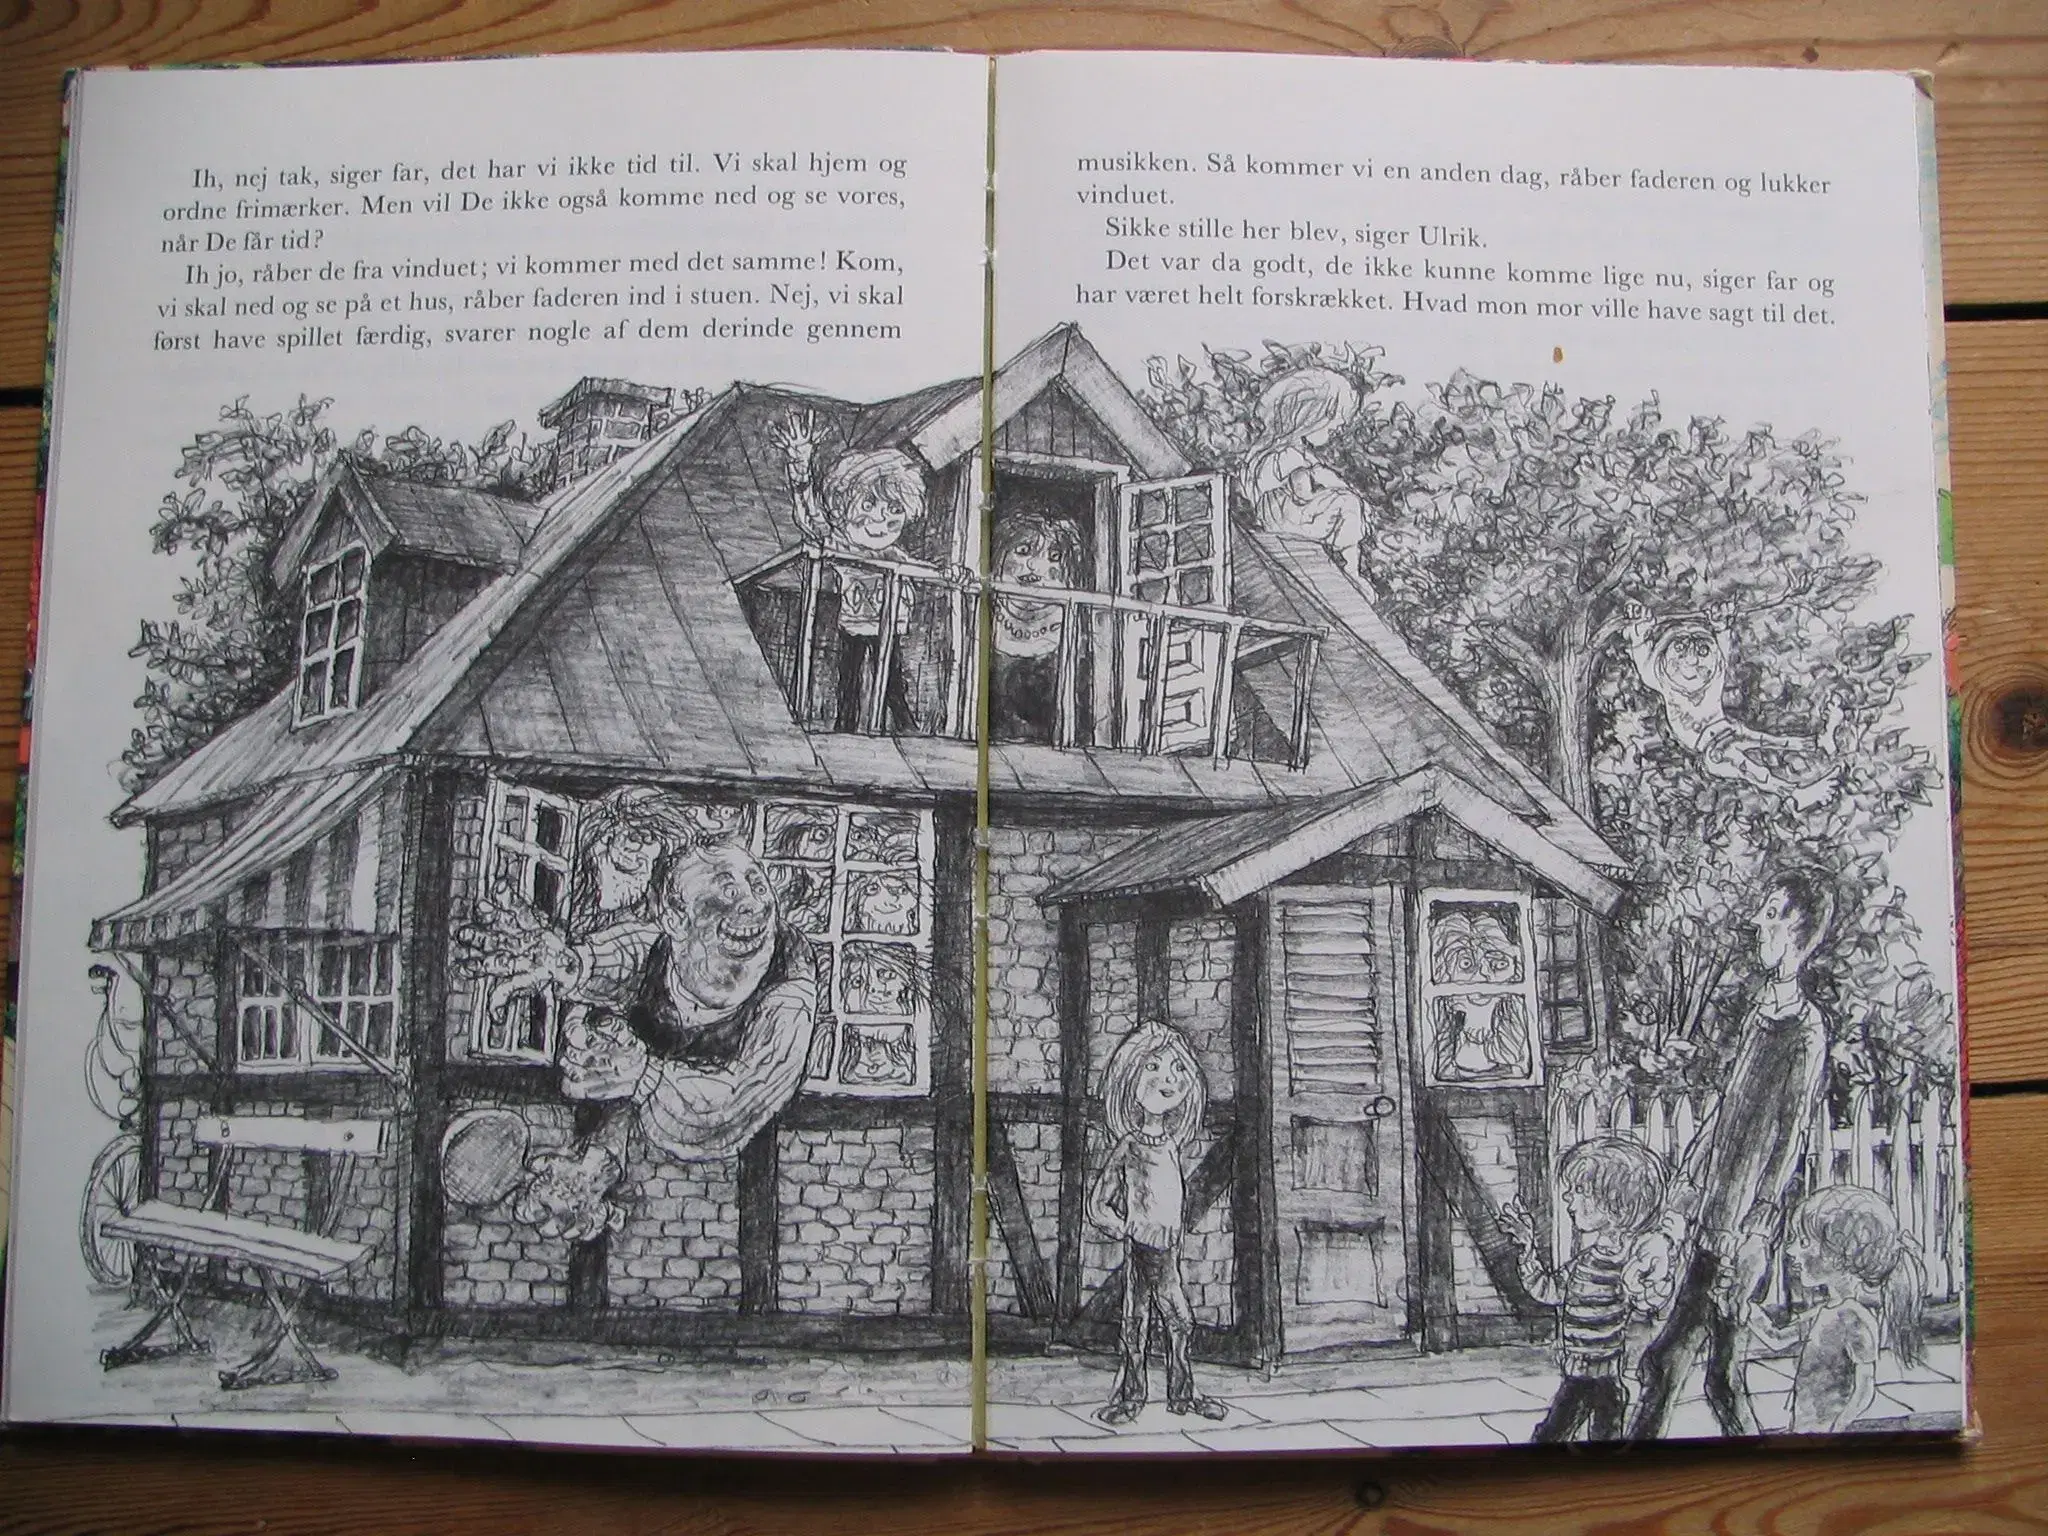 Ih, nej tak, siger far, det har vi ikke tid til. Vi skal hjem og
ordne frimærker. Men vil De ikke også komme ned og se vores,
når De får tid?
Ih jo, råber de fra vinduet; vi kommer med det samme! Kom,
vi skal ned og se på et hus, råber faderen ind i stuen. Nej, vi skal
først have spillet færdig, svarer nogle af dem derinde gennem
musikken. Så kommer vi en anden dag, råber faderen og lukker
vinduet.
Sikke stille her blev, siger Ulrik.
Det var da godt, de ikke kunne komme lige nu, siger far og
har været helt forskrækket. Hvad mon mor ville have sagt til det.